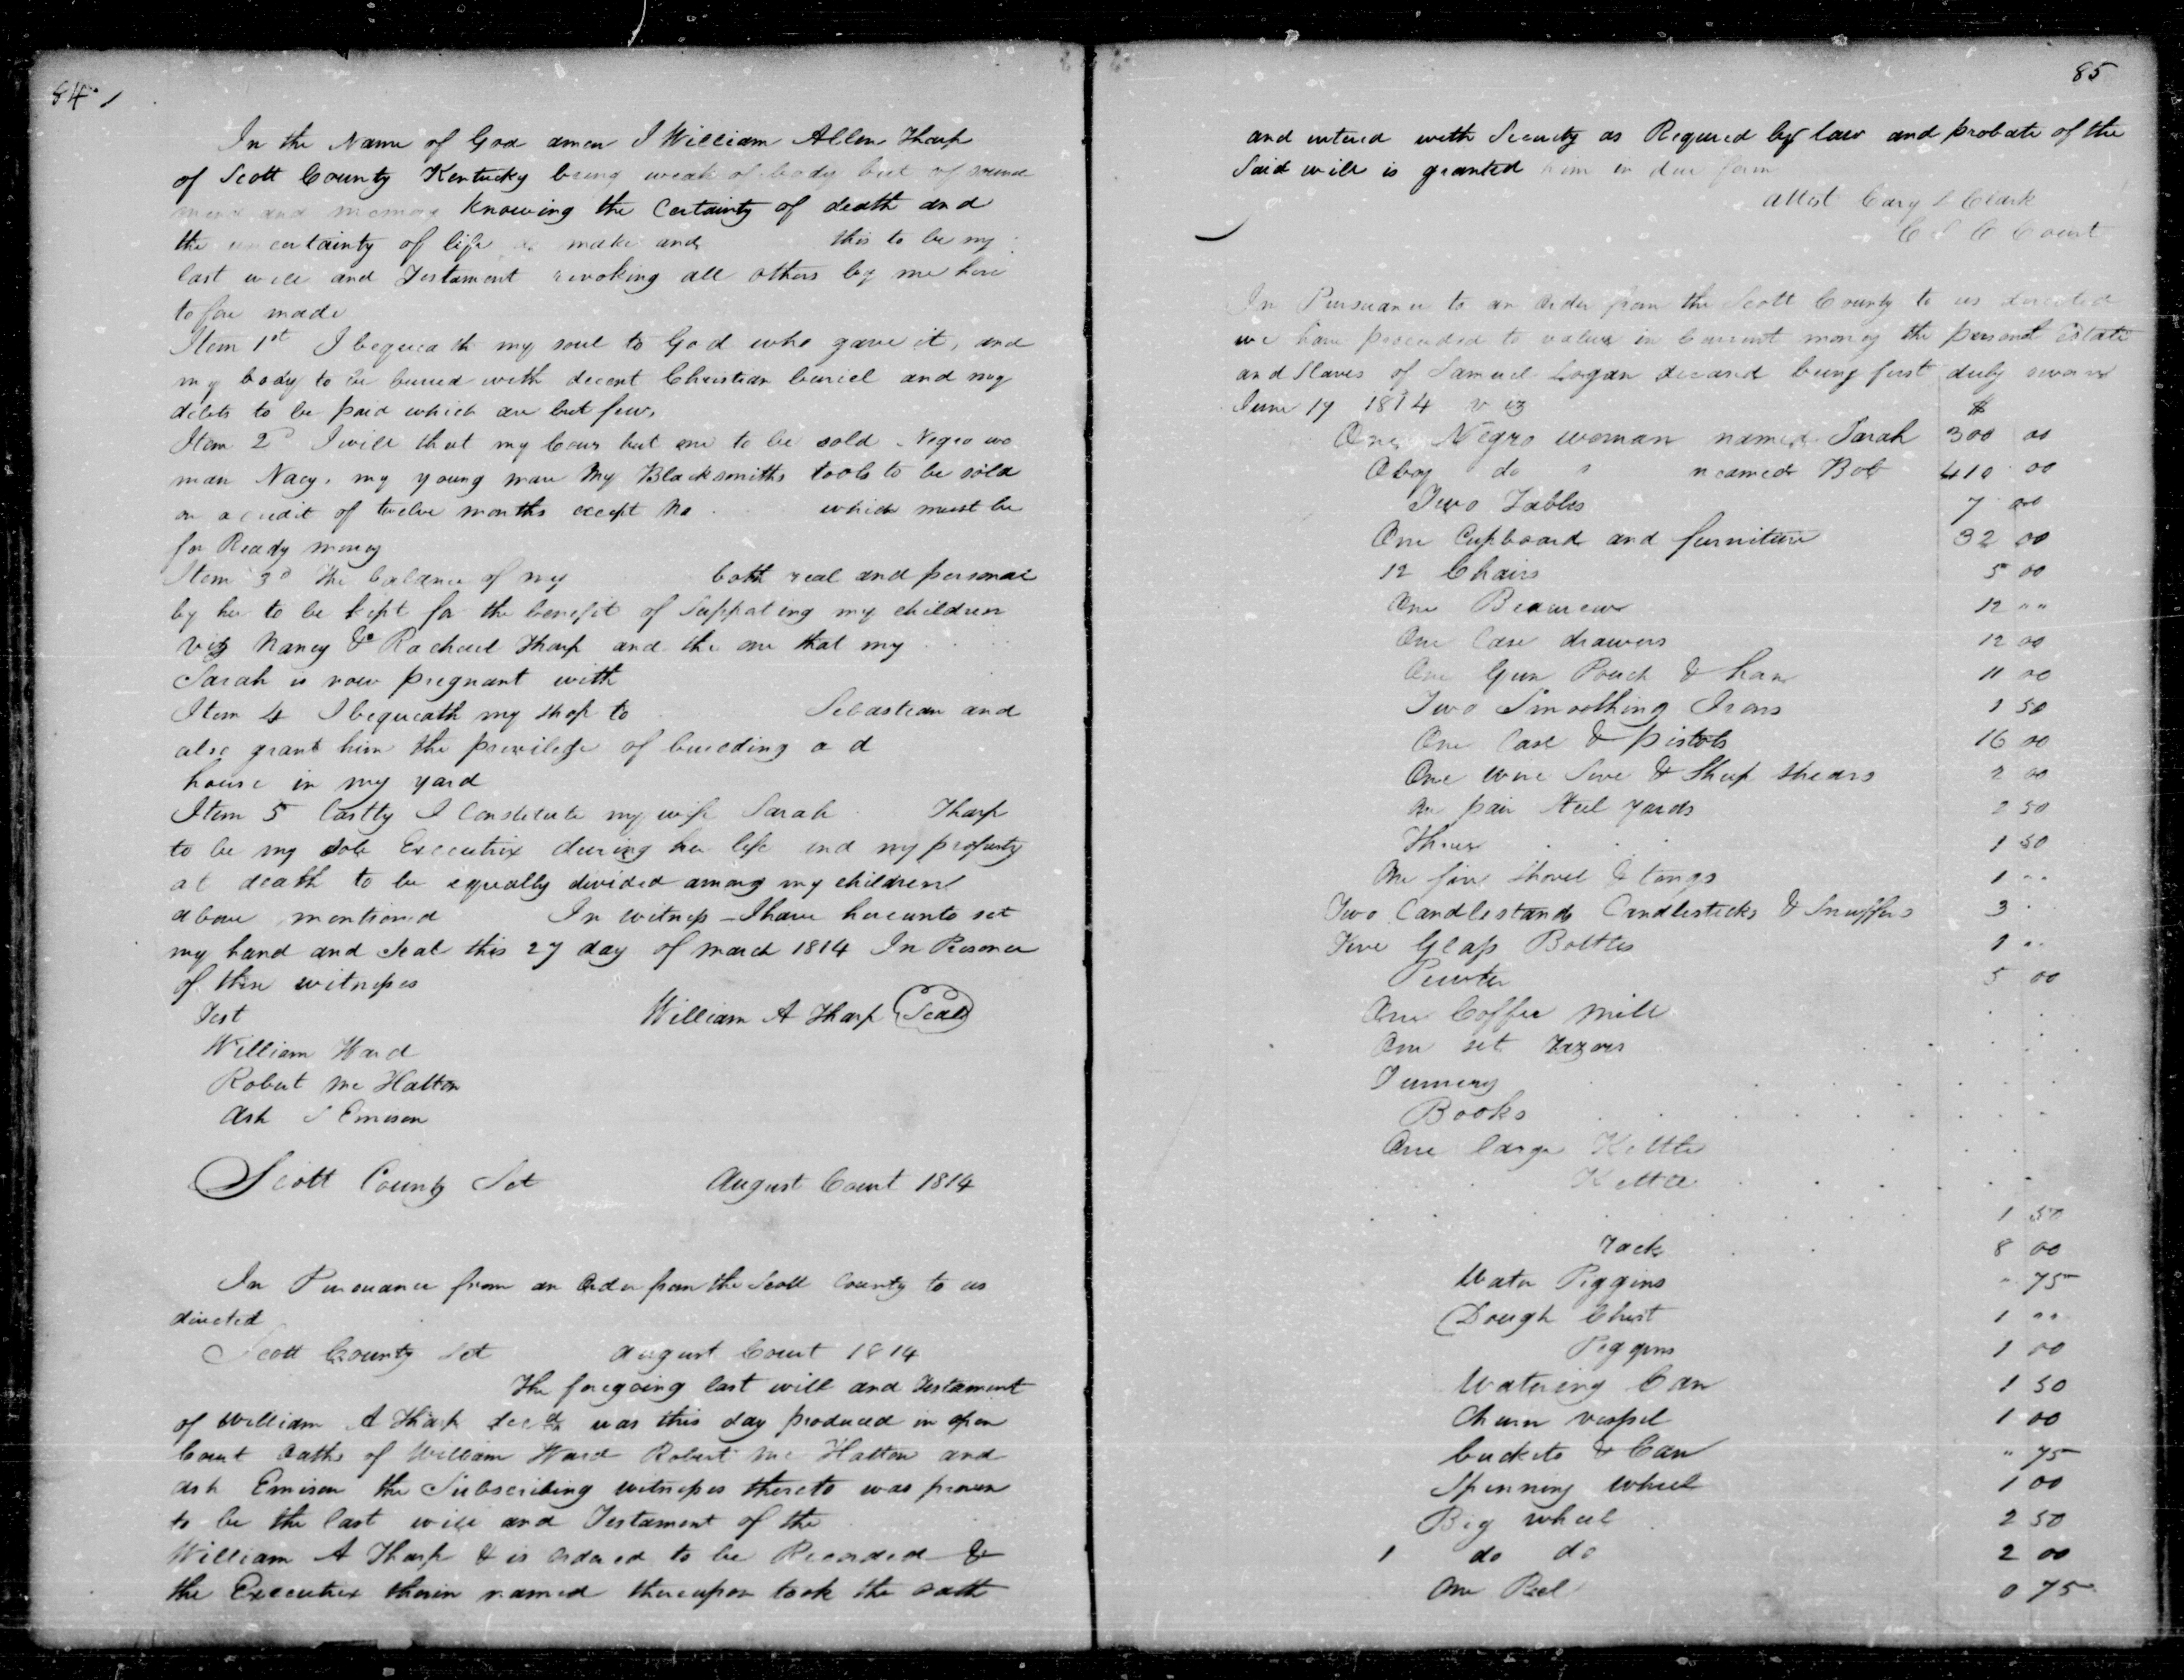 84
In the Name of God amen I William Allen Tharp
of Scott County Kentucky being weak of body but of sound
mind and memory Knowing the Certainty of death and
the uncertainty of life do make and this to be my
last will and Testament revoking all others by me here
tofore made
Item 1st I bequeath my soul to God who gave it, and
my body to be buried with decent Christian buriel and my
debts to be paid which are but few.
Item 2d I will that my Cows but one to be sold Negro wo
man Nacy, my young mare My Blacksmiths tools to be sold
on a credit of twelve months except which must be
for Ready money
Item 3d The balance of my both real and personal
by her to be kept for the benefit of Suppating my children
viz Nancy & Racheel Tharp and the one that my
Sarah is now pregnant with
Item 4 I bequeath my shop to Sebastian and
also grant him the privilege of building a d
house in my yard
Item 5 Lastly I Constitute my wife Sarah Tharp
to be my sole Executrix during her life and my property
at death to be equally divided among my children
above mentioned In witness I have hereunto set
my hand and Seal this 27 day of March 1814 In Presence
of these witnesses
Test William A Tharp Seal
William Ward
Robert Mc Hatton
Ash Emison
Scott County Sct August Court 1814
In Pursuance from an Order from the Scott County to us
directed
Scott County Sct August Court 1814
The foregoing last will and Testament
of William A Tharp decd was this day produced in open
Court Oaths of William Ward Robert Mc Hatton and
Ash Emison the Subscribing witnesses thereto was proven
to be the last will and Testament of the
William A Tharp & is Ordered to be Recorded &
the Executrix therein named thereupon took the oath
85
and entered with Security as Required by law and probate of the
Said will is granted him in due form
Attest Cary L Clark
C S C Court
In Pursuance to an Order from the Scott County to us directed
we have proceeded to value in Current money the personal Estate
and Slaves of Samuel Logan deceased being first duly sworn
June 17 1814 viz $
One Negro woman named Sarah 300 00
A boy do " named Bob 410 00
Two Tables 7 00
One Cupboard and furniture 32 00
12 Chairs 5 00
One Beaureau 12 " "
One Case drawers 12 00
One Gun Pouch & horn 11 00
Two Smoothing Irons 1 50
One Case & pistols 16 00
One wire Sive & Sheep Shears 2 00
One pair Steel yards 2 50
1 50
One fire Shovel & tongs 1 " "
Two Candlestands Candlesticks & Snuffers 3
Five Glass Bottles 1 " "
Pewter 5 00
One Coffee Mill
One set Razors
Books
One large Kettle
Kettle
1 50
Jack 8 00
Water Piggins " 75
Dough Chest 1 " "
Piggins 1 00
Watering Can 1 50
Churn vessel 1 00
buckets & Can " 75
Spinning wheel 1 00
Big wheel 2 50
1 do do 2 00
One Reel 0 75